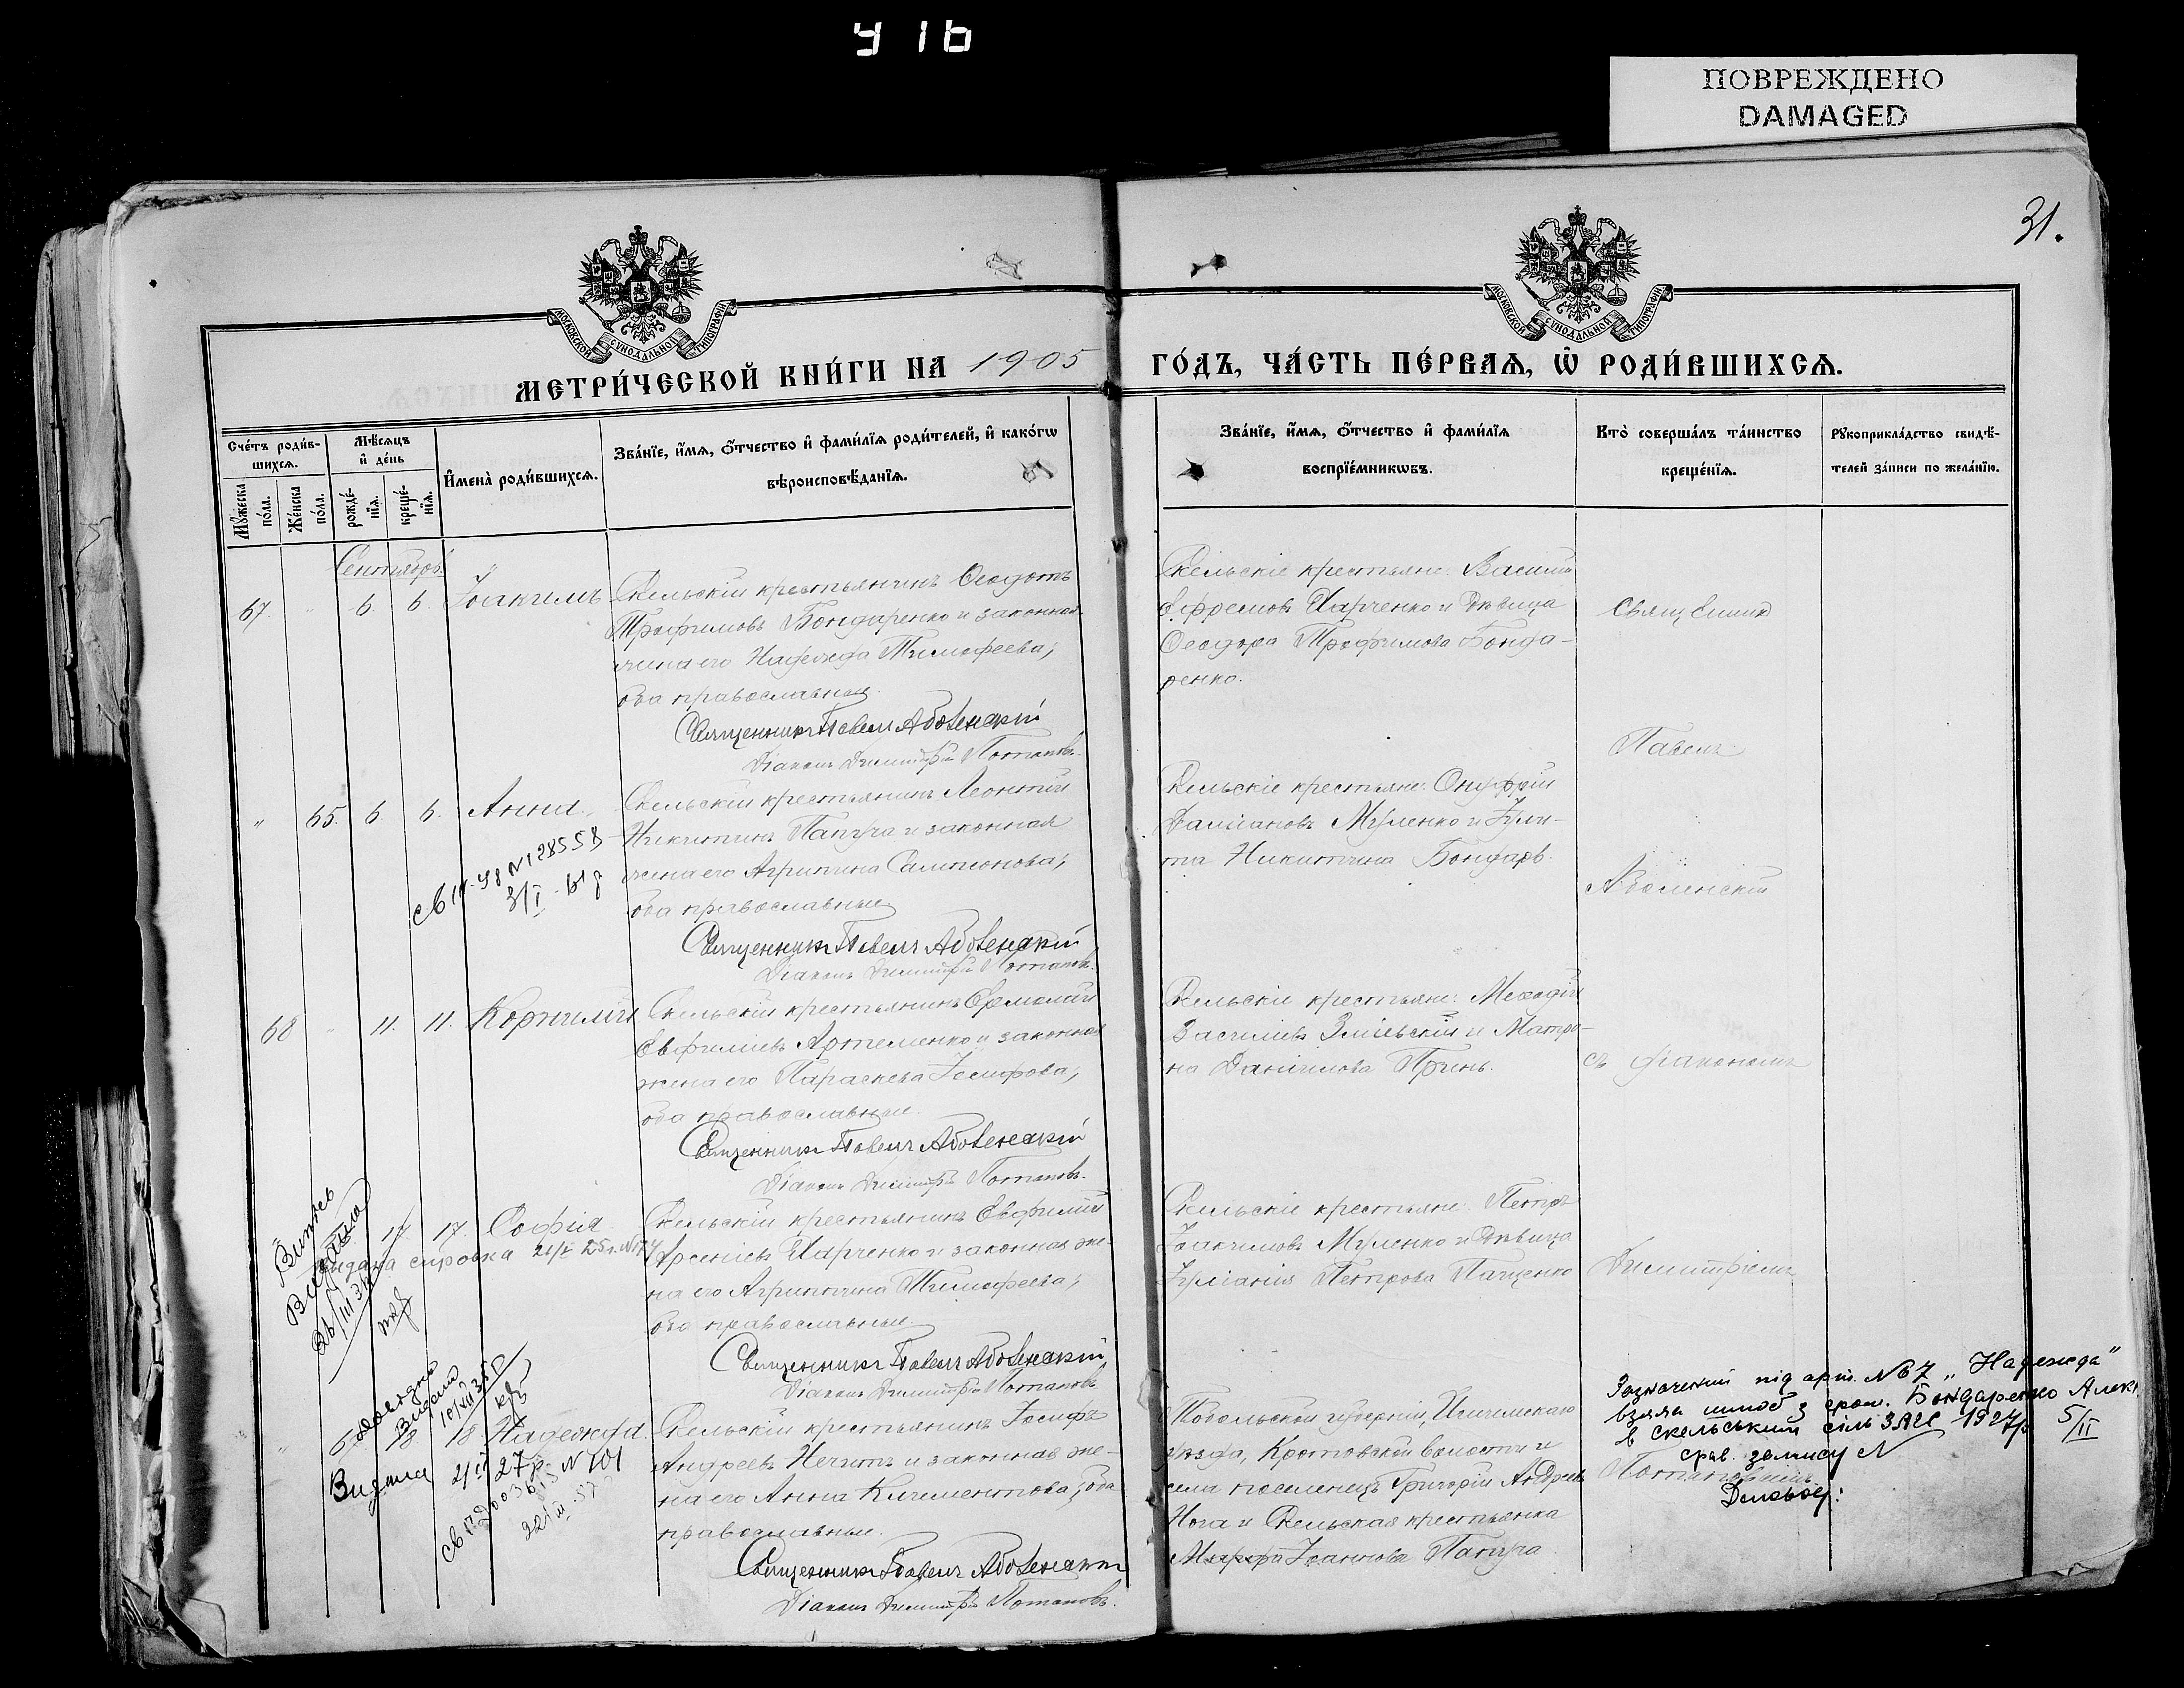 416
ПОВРЕЖДЕНО
DAMAGED
31.
МОСКОВСКОЙ СУНОДАЛЬНОЙ ТИПОГРАФІИ
МОСКОВСКОЙ СУНОДАЛЬНОЙ ТИПОГРАФІИ
МЕТРИ́ЧЕСКОЙ КНИ́ГИ НА 1905 ГО́ДЪ, ЧА́СТЬ ПЕ́РВАѦ, Ѿ РОДИ́ВШИХСѦ.
Сче́тъ роди́в-
шихсѧ.
Мꙋ́жеска
по́ла.
Же́нска
по́ла.
Мѣ́сѧцъ
и҆ де́нь
рожде́-
нїѧ.
креще́-
нїѧ.
И҆мена̀ роди́вшихсѧ.
Зва́нїе, и҆́мѧ, ѻ҆́тчество и҆ фами́лїѧ роди́телей, и҆ како́гѡ
вѣроисповѣ́данїѧ.
Зва́нїе, и҆́мѧ, ѻ҆́тчество и҆ фами́лїѧ
воспрїе́мникѡвъ.
Кто̀ соверша́лъ та́инство
креще́нїѧ.
Рꙋкоприкла́дство свидѣ́-
телей за́писи по жела́нїю.
Сентябрь
67. " 6. 6. Іоакимъ
Скельскій крестьянинъ Ѳеодотъ
Трофимовъ Бондаренко и законная
жена его Надежда Тимофеева,
оба православные.
Священникъ Павелъ Аболенскій
Діаконъ Димитрій Потаповъ.
Скельскіе крестьяне: Василій
Ефремовъ Харченко и дѣвица
Ѳеодора Трофимова Бонда-
ренко.
Священникъ
Павелъ
Аболенскій
съ діакономъ
Димитріемъ
" 65. 6. 6. Анна.
св № 128558
3/I
Скельскій крестьянинъ Леонтій
Никитинъ Папуча и законная
жена его Агрипина Сампсонова,
оба православные
Священникъ Павелъ Аболенскій
Діаконъ Димитрій Потаповъ.
Скельскіе крестьяне: Онуфрій
Даміановъ Муленко и Іули-
та Никитина Бондарь.
68 " 11. 11. Корнилій
Скельскій крестьянинъ Ермолай
Евфиміевъ Артеменко и законная
жена его Параскева Іосифова,
оба православные.
Священникъ Павелъ Аболенскій
Діаконъ Димитрій Потаповъ.
Скельскіе крестьяне: Меѳодій
Василіевъ Зміевскій и Матро-
на Даніилова Принь.
17 17. Софія.
Витяг
Видана справка 21/X 25 г. №
26/III 31
Скельскій крестьянинъ Евфимій
Арсеніевъ Харченко и законная же-
на его Агрипина Тимофеева,
оба православные.
Священникъ Павелъ Аболенскій
Діаконъ Димитрій Потаповъ
Скельскіе крестьяне: Петръ
Іоакимовъ Муленко и дѣвица
Іуліанія Петрова Пащенко
" 18 18 Надежда.
Видана
Видана 2/II 27 р. № 101
Скельскій крестьянинъ Іосифъ
Андреевъ Нечитъ и законная же-
на его Анна Климентова, оба
православные.
Священникъ Павелъ Аболенскій
Діаконъ Димитрій Потаповъ.
Тобольской губерніи, Ишимскаго
уѣзда, Кротовской волости и
села поселенецъ Григорій Андреевъ
Нога и Скельская крестьянка
Марфа Іоаннова Папуча
Потаповымъ.
Зазначений під арт. № 67 „Надежда"
взяла шлюб з гром. Бондаренко Алек
в скельський сіль ЗАГС 1927 р 5/II
срав. запису №
Діловод: